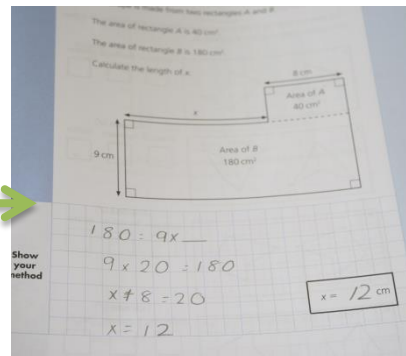 is made from two rectangles A and B.
The area of rectangle A is 40 cm²
The area of rectangle B is 180 cm²
Calculate the length of x.
8 cm
Area of A
40 cm²
x
9 cm
Area of B
180 cm²
180 = 9 x __
9 x 20 = 180
Show
your
method
x + 8 = 20
x = 12 cm
x = 12